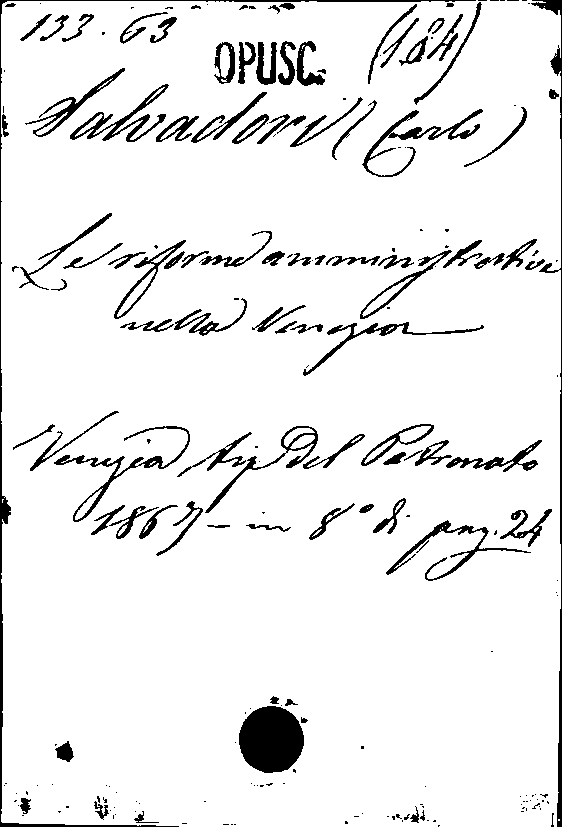 133. G3 OPUSC. (184)
Salvadori (Carlo)
Le riforme amministrative
nella Venezia
Venezia tip del Patronato
1867 - in 8° di pag. 24